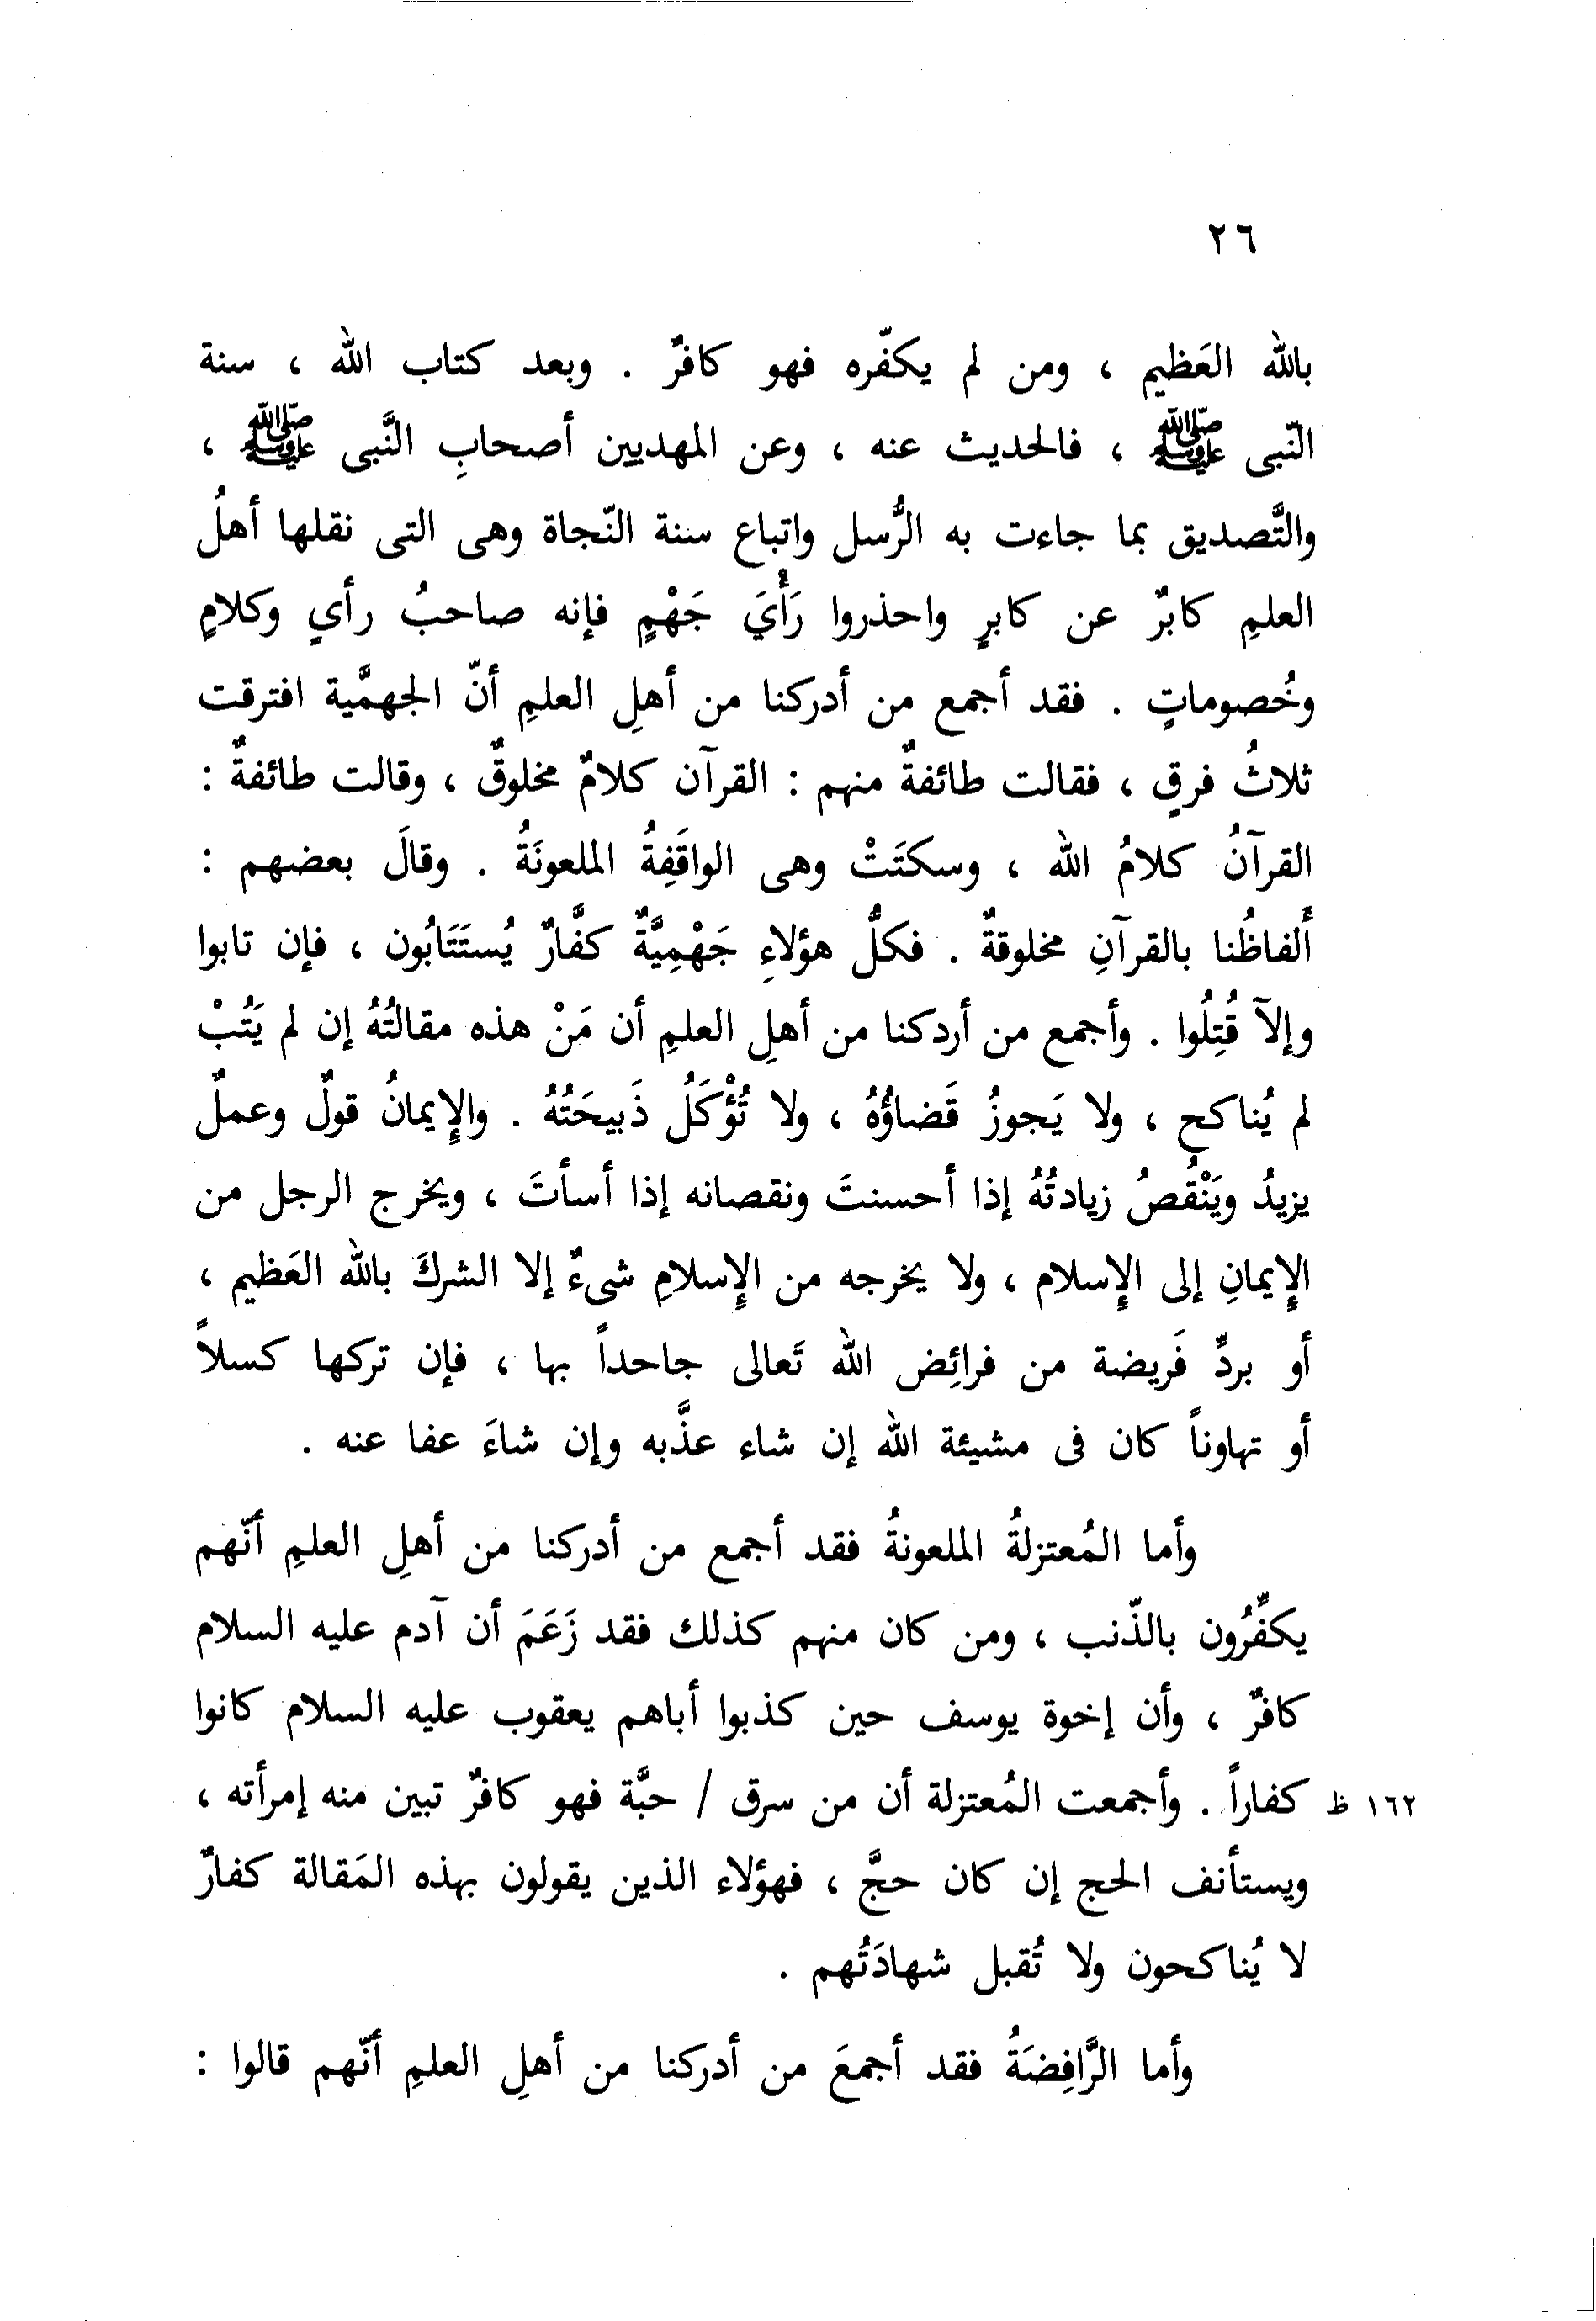 ٢٦
بالله العَظيم ، ومن لم يكفّره فهو كافرٌ . وبعد كتاب الله ، سنة
النّبى ﷺ ، فالحديث عنه ، وعن المهديين أصحابِ النَّبى ﷺ ،
والتَّصديق بما جاءت به الرُّسل واتباع سنة النّجاة وهى التى نقلها أهلُ
العلمِ كابرٌ عن كابرٍ واحذروا رَأْيَ جَهْمٍ فإنه صاحبُ رأىٍ وكلامٍ
وخُصوماتٍ . فقد أجمع من أدركنا من أهلِ العلمِ أنّ الجهمَّية افترقت
ثلاثُ فرقٍ ، فقالت طائفةٌ منهم : القرآن كلامٌ مخلوقٌ ، وقالت طائفةٌ :
القرآنُ كلامُ الله ، وسكتَتْ وهى الواقَفِةُ الملعونَةُ . وقالَ بعضهم :
أَلفاظُنا بالقرآنِ مخلوقةٌ . فكلُّ هؤلاءِ جَهْمِيَّةٌ كفَّارٌ يُستَتَابُون ، فإن تابوا
وإلآ قُتِلُوا . وأجمع من أردكنا من أهلِ العلمِ أن مَنْ هذه مقالتُهُ إن لم يَتُبْ
لم يُناكح ، ولا يَجوزُ قَضاؤُهُ ، ولا تُؤْكَلُ ذَبيحَتُهُ . والإِيمانُ قولٌ وعملٌ
يزيدُ ويَنْقُصُ زيادتُهُ إذا أحسنتَ ونقصانه إذا أسأتَ ، ويخرج الرجل من
الإِيمانِ إلى الإِسلام ، ولا يخرجه من الإِسلامِ شىءٌ إلا الشركَ بالله العَظيم ،
أو بردِّ فَريضة من فرائِض الله تَعالى جاحداً بها ، فإن تركها كسلاً
أو تهاوناً كان فى مشيئة الله إن شاء عذَّبه وإن شاءَ عفا عنه .
وأما المُعتزلةُ الملعونةُ فقد أجمع من أدركنا من أهلِ العلمِ أنّهم
يكفِّرُون بالذّنب ، ومن كان منهم كذلك فقد زَعَمَ أن آدم عليه السلام
كافرٌ ، وأن إخوة يوسف حين كذبوا أباهم يعقوب عليه السلام كانوا
١٦٢ ظ كفاراً . وأجمعت المُعتزلة أن من سرق / حبَّة فهو كافرٌ تبين منه إمرأته ،
ويستأنف الحج إن كان حجَّ ، فهؤلاء الذين يقولون بهذه المَقالة كفارٌ
لا يُناكحون ولا تُقبل شهادَتُهم .
وأما الرَّافِضَةُ فقد أجمعَ من أدركنا من أهلِ العلمِ أنّهم قالوا :